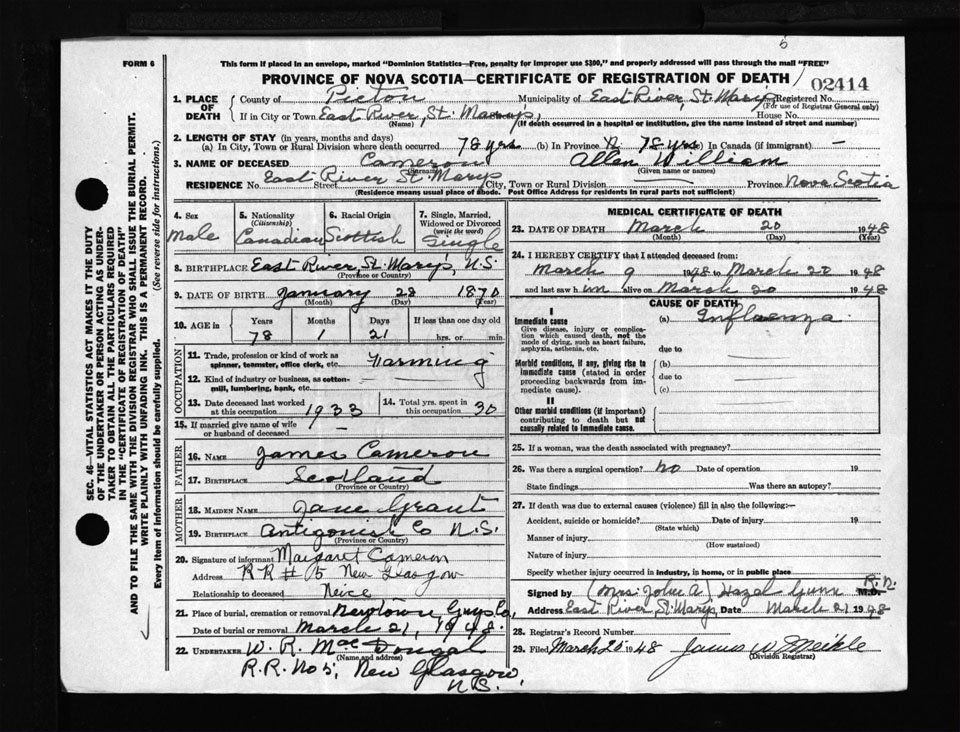 6
FORM 6
This form if placed in an envelope, marked "Dominion Statistics—Free, penalty for improper use $300," and properly addressed will pass through the mail "FREE"
PROVINCE OF NOVA SCOTIA—CERTIFICATE OF REGISTRATION OF DEATH
02414
1. PLACE OF DEATH
County of Pictou Municipality of East River St. Mary's Registered No.
(For use of Registrar General only)
If in City or Town East River, St. Mary's, House No.
(Name) (If death occurred in a hospital or institution, give the name instead of street and number)
2. LENGTH OF STAY (in years, months and days)
(a) In City, Town or Rural Division where death occurred 78 yrs (b) In Province 78 yrs (c) In Canada (if immigrant) —
3. NAME OF DECEASED Cameron Allen William
(Surname) (Given name or names)
RESIDENCE No. East River St. Mary's Street City, Town or Rural Division Province Nova Scotia
(Residence means usual place of abode. Post Office Address for residents in rural parts not sufficient)
4. Sex Male
5. Nationality (Citizenship) Canadian
6. Racial Origin Scottish
7. Single, Married, Widowed or Divorced (write the word) Single
8. BIRTHPLACE East River, St. Mary's, N.S.
(Province or Country)
9. DATE OF BIRTH January 28 1870
(Month) (Day) (Year)
10. AGE in Years Months Days If less than one day old
78 1 21 hrs. or min.
OCCUPATION
11. Trade, profession or kind of work as spinner, teamster, office clerk, etc. Farming
12. Kind of industry or business, as cotton-mill, lumbering, bank, etc.
13. Date deceased last worked at this occupation 1933
14. Total yrs. spent in this occupation 30
15. If married give name of wife or husband of deceased —
FATHER
16. NAME James Cameron
17. BIRTHPLACE Scotland
(Province or Country)
MOTHER
18. MAIDEN NAME Jane Grant
19. BIRTHPLACE Antigonish Co N.S.
(Province or Country)
20. Signature of informant Margaret Cameron
Address RR # 5 New Glasgow
Relationship to deceased Neice
21. Place of burial, cremation or removal Newtown Guys Co,
Date of burial or removal March 21, 1948.
22. UNDERTAKER W. R. MacDougal
(Name and address)
R.R. No 5, New Glasgow
N.S.
MEDICAL CERTIFICATE OF DEATH
23. DATE OF DEATH March 20 1948
(Month) (Day) (Year)
24. I HEREBY CERTIFY that I attended deceased from:
March 9 1948 to March 20 1948
and last saw him alive on March 20 1948
CAUSE OF DEATH
I
Immediate cause (a) Influenza
Give disease, injury or complication which caused death, not the mode of dying, such as heart failure, asphyxia, asthenia, etc.
due to
Morbid conditions, if any, giving rise to immediate cause (stated in order proceeding backwards from immediate cause).
(b)
due to
(c)
II
Other morbid conditions (if important) contributing to death but not causally related to immediate cause.
25. If a woman, was the death associated with pregnancy?
26. Was there a surgical operation? no Date of operation 19
State findings Was there an autopsy?
27. If death was due to external causes (violence) fill in also the following:—
Accident, suicide or homicide? Date of injury 19
(State which)
Manner of injury
(How sustained)
Nature of injury
Specify whether injury occurred in industry, in home, or in public place
Signed by (Mrs. John A) Hazel Gunn R.N. M.D.
Address East River, St. Mary's, Date March 21 1948
28. Registrar's Record Number
29. Filed March 25 1948 James W Meikle
(Division Registrar)
SEC. 46—VITAL STATISTICS ACT MAKES IT THE DUTY
OF THE UNDERTAKER OR PERSON ACTING AS UNDERTAKER
TO OBTAIN ALL THE PARTICULARS REQUIRED
IN THE "CERTIFICATE OF REGISTRATION OF DEATH"
AND TO FILE THE SAME WITH THE DIVISION REGISTRAR WHO SHALL ISSUE THE BURIAL PERMIT.
WRITE PLAINLY WITH UNFADING INK. THIS IS A PERMANENT RECORD.
Every item of information should be carefully supplied. (See reverse side for instructions.)